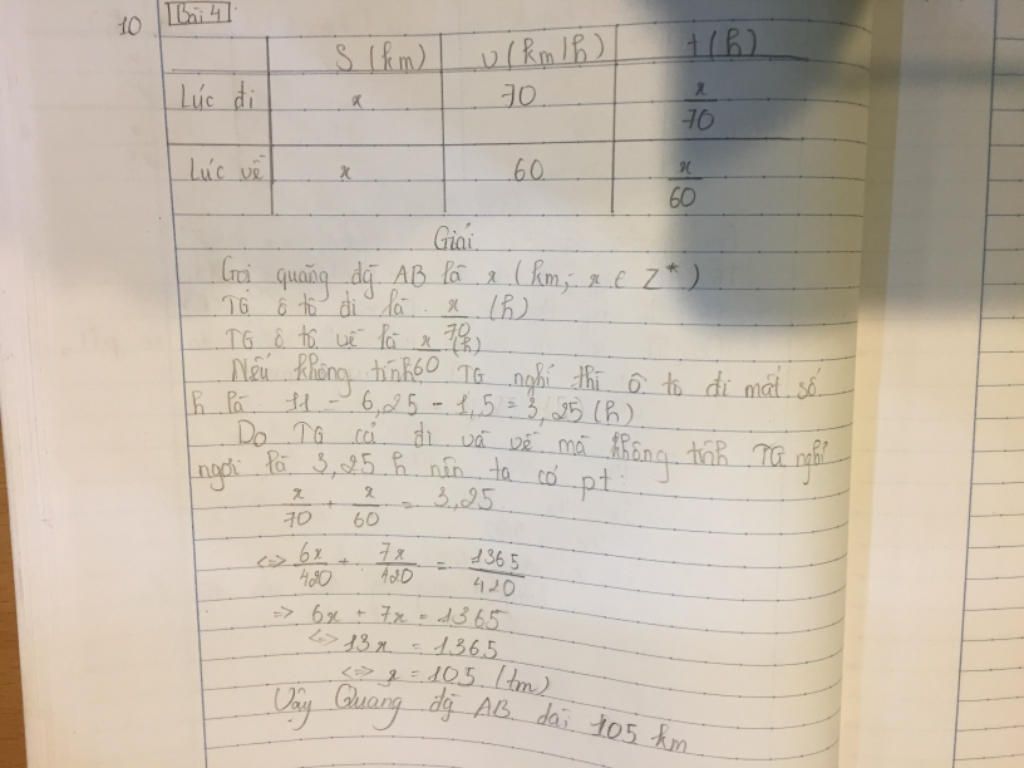 10
Bài 4
S (km) v (km/h) t (h)
Lúc đi x 70 x/70
Lúc về x 60 x/60
Giải
Gọi quãng đg AB là x (km; x ∈ Z*)
TG ô tô đi là x/70 (h)
TG ô tô về là x/60 (h)
Nếu không tính TG nghỉ thì ô tô đi mất số
h là 11 - 6,25 - 1,5 = 3,25 (h)
Do TG cả đi và về mà không tính TG nghỉ
ngơi là 3,25 h nên ta có pt:
x/70 + x/60 = 3,25
<=> 6x/420 + 7x/420 = 1365/420
=> 6x + 7x = 1365
<=> 13x = 1365
<=> x = 105 (tm)
Vậy Quang đg AB dài 105 km